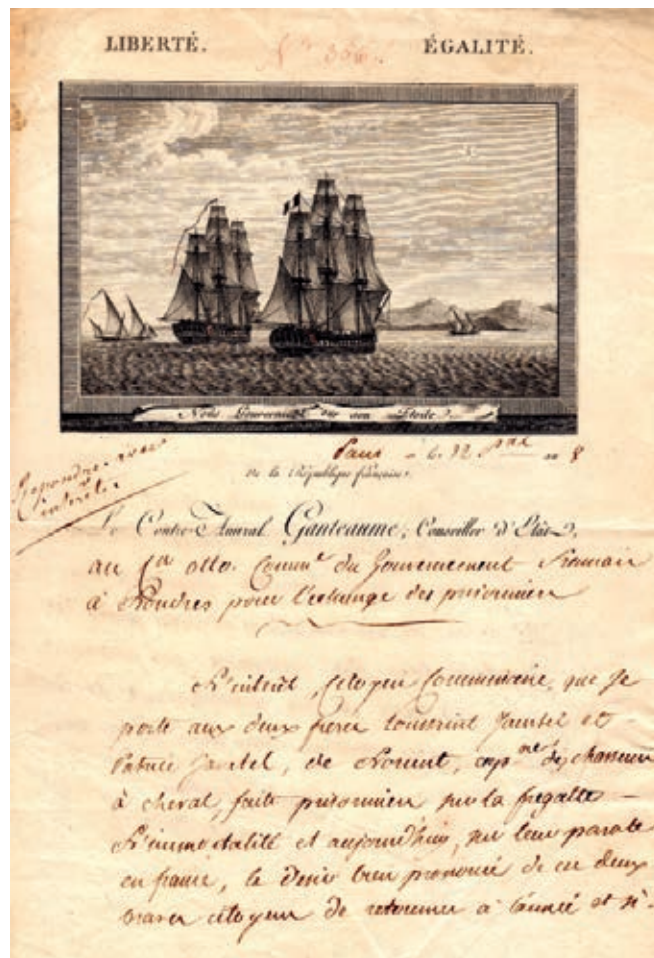 LIBERTÉ. ÉGALITÉ.
Nous Gouvernions sur son Étoile.
Paris le 12 an 8
de la République française.
Répondre avec intérêt
Le Contre-Amiral Ganteaume, Conseiller d'État,
au Cen otto. Commre du Gouvernement francais
à Londres pour l'echange des prisonniers
L'intérêt, Citoyen Commissaire, que je
porte aux deux freres toussaint Jamtel et
Patrice Jamtel, de Lorient, capne des chasseurs
à cheval, faits prisonniers sur la fregatte
L'immortalité et aujourd'huy, sur leur parole
en france, le desir bien prononcé de ces deux
braves citoyens de retourner à l'armée et